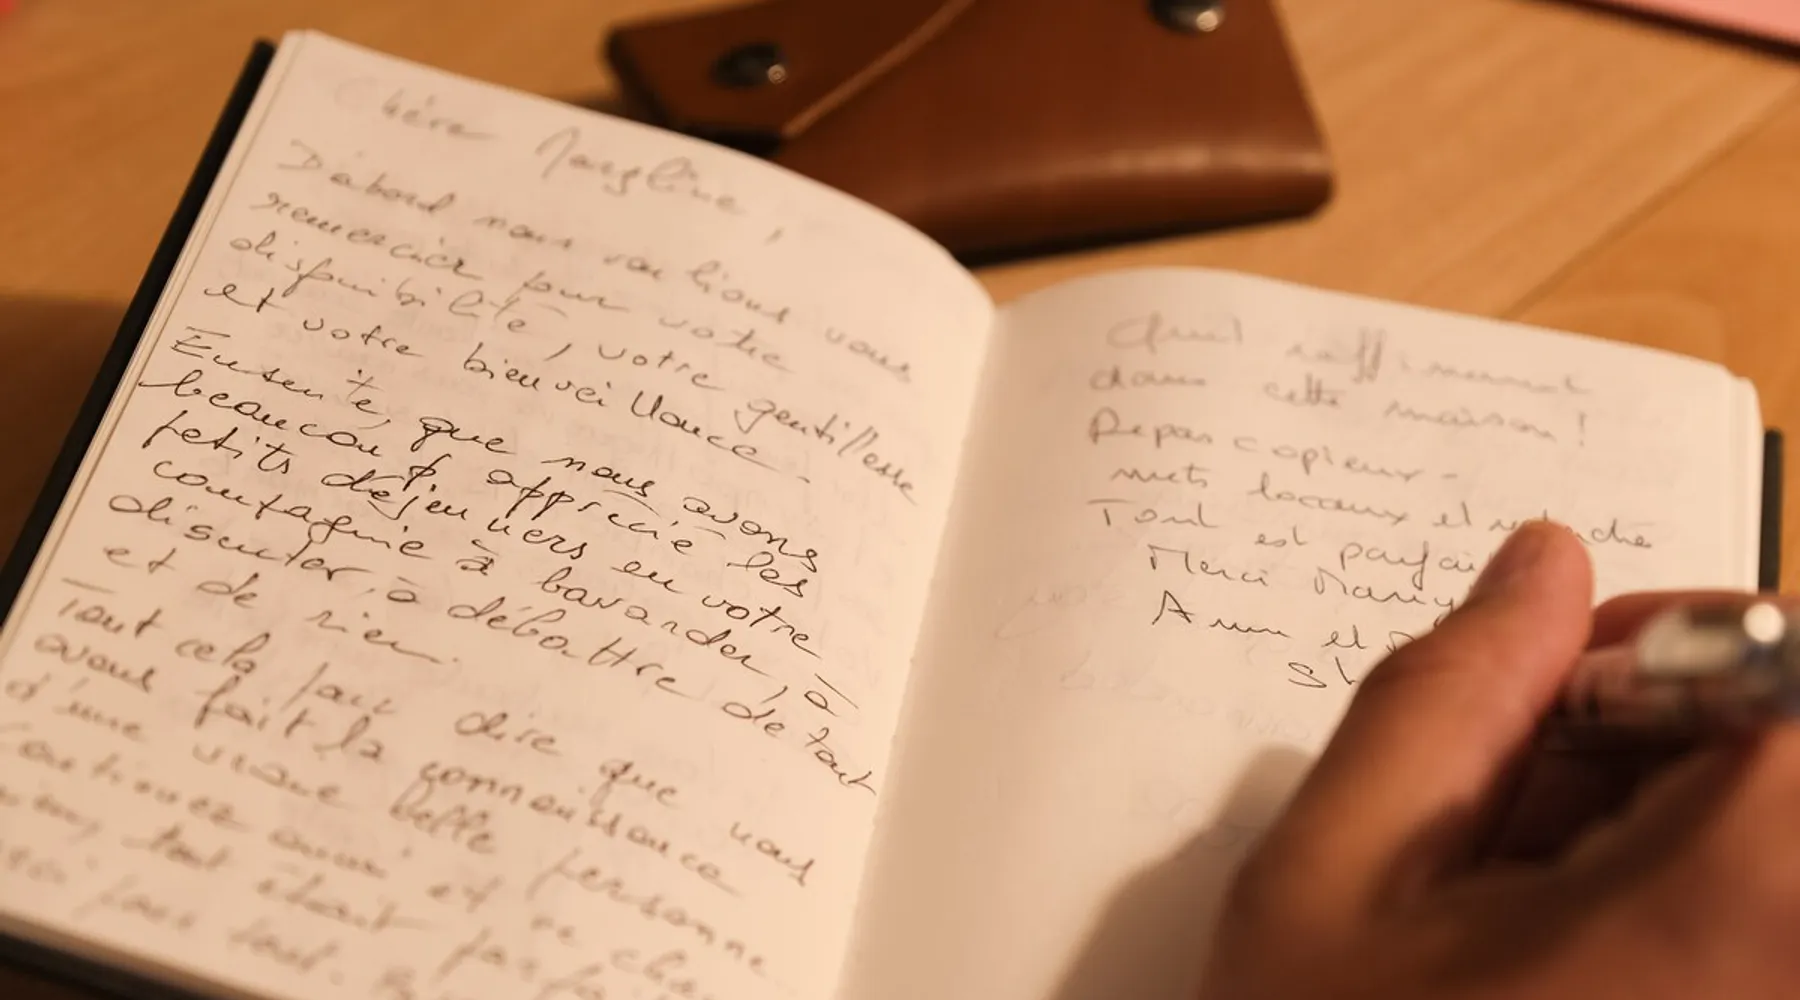 Chère Maryline,
D'abord nous voulions vous
remercier pour votre
disponibilité, votre gentillesse
et votre bienveillance.
Ensuite, que nous avons
beaucoup apprécié les
petits déjeuners en votre
compagnie à bavarder, à
discuter, à débattre de tout
et de rien.
Tout cela pour dire que nous
avons fait la connaissance
d'une vraie belle personne
Continuez ainsi et ne
tout était
pour tout.
Quel raffinement
dans cette maison !
Repas copieux -
mets locaux et
Tout est parfait
Merci Mary
Anne et